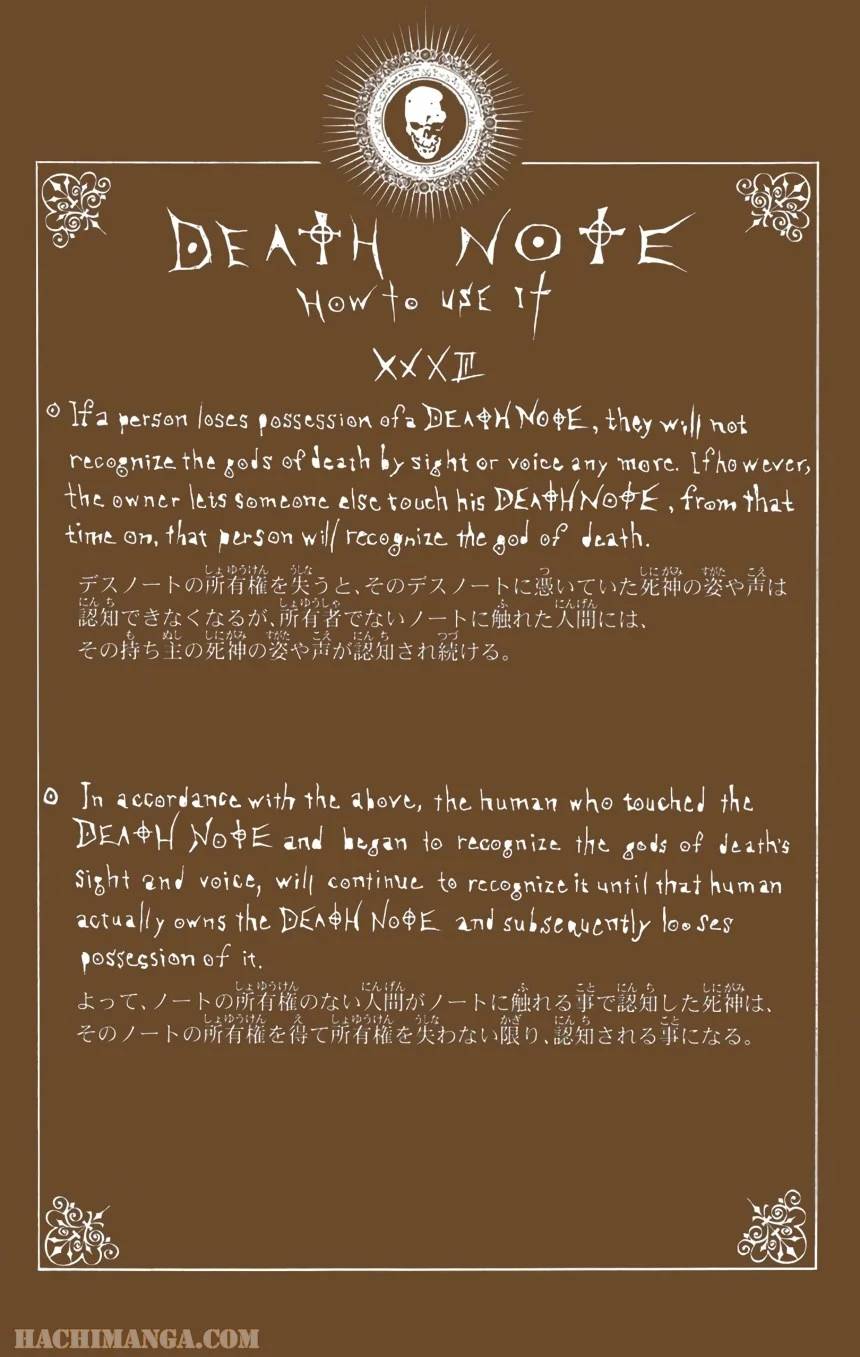 DEATH NOTE
HOW TO USE IT
XXXIII
If a person loses possession of a DEATH NOTE, they will not
recognize the gods of death by sight or voice any more. If however,
the owner lets someone else touch his DEATH NOTE, from that
time on, that person will recognize the god of death.
デスノートの所有権を失うと、そのデスノートに憑いていた死神の姿や声は
認知できなくなるが、所有者でないノートに触れた人間には、
その持ち主の死神の姿や声が認知され続ける。
In accordance with the above, the human who touched the
DEATH NOTE and began to recognize the gods of death's
sight and voice, will continue to recognize it until that human
actually owns the DEATH NOTE and subsequently looses
possession of it.
よって、ノートの所有権のない人間がノートに触れる事で認知した死神は、
そのノートの所有権を得て所有権を失わない限り、認知される事になる。
HACHIMANGA.COM